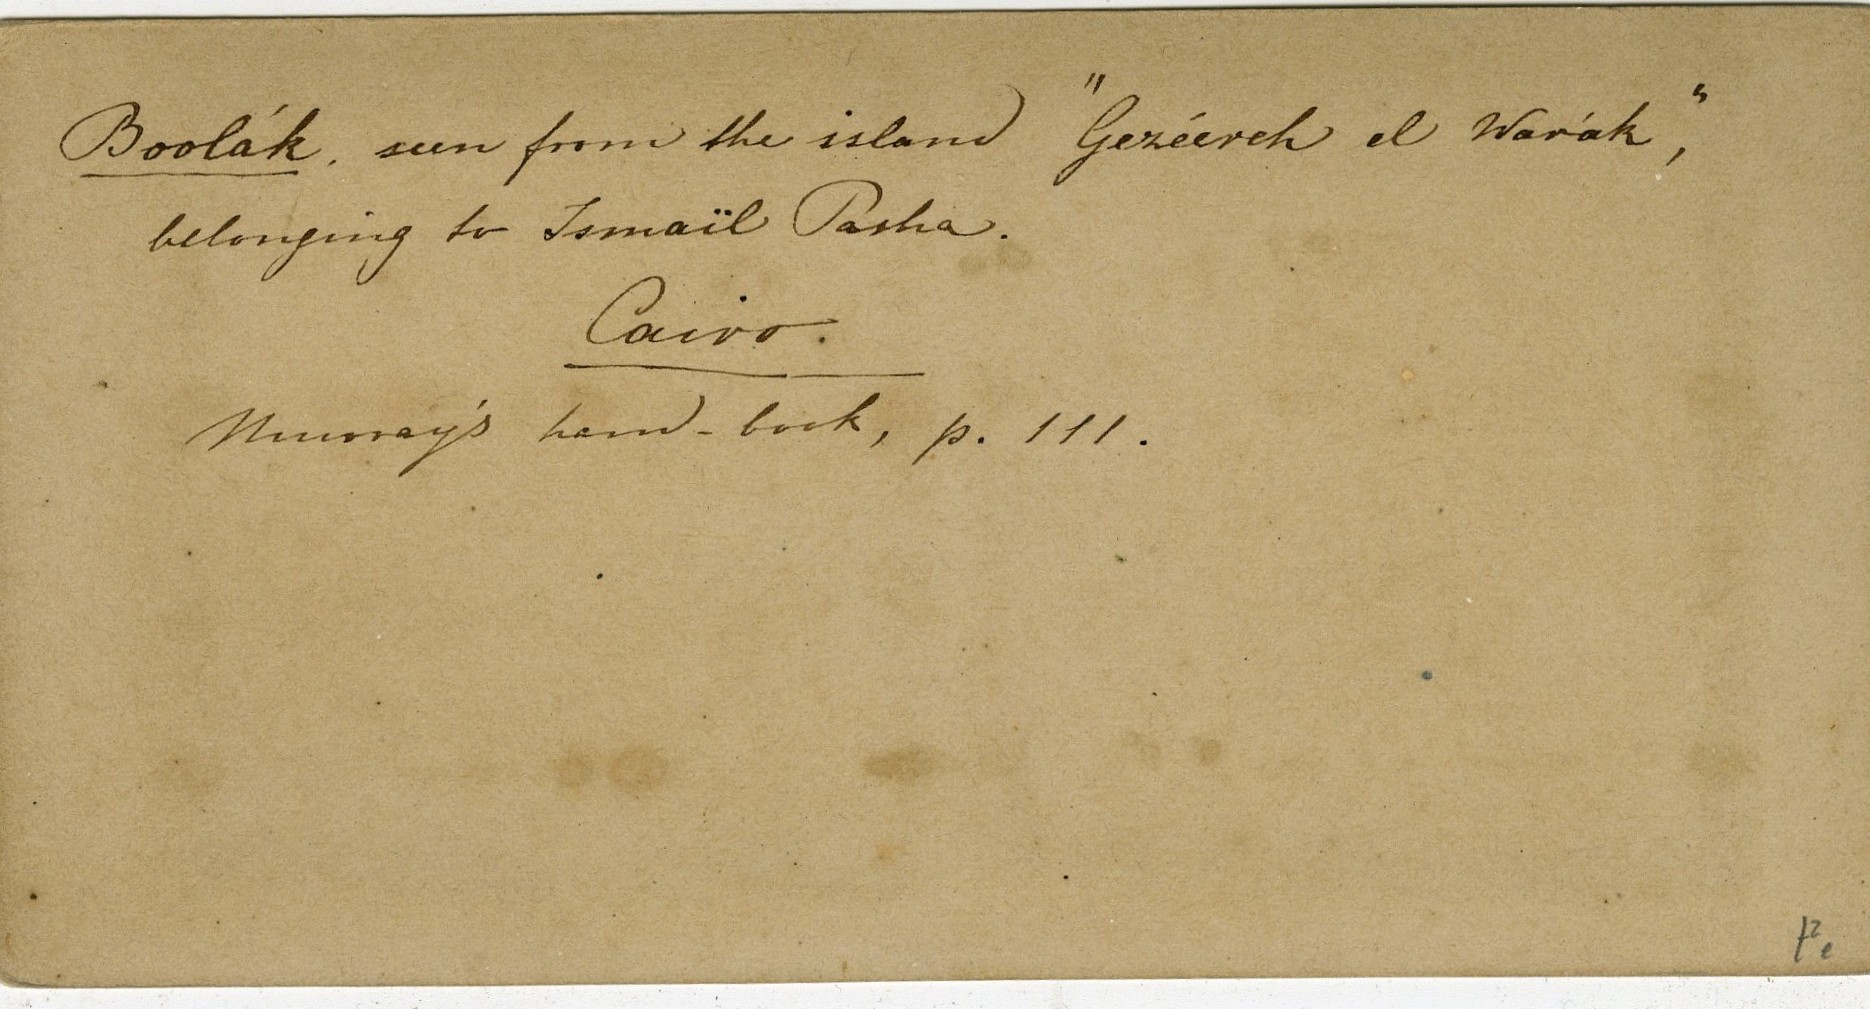 Boolák. seen from the island "Gezéereh el Warák,"
belonging to Ismaïl Pasha.
Cairo.
Murray's hand-book, p. 111.